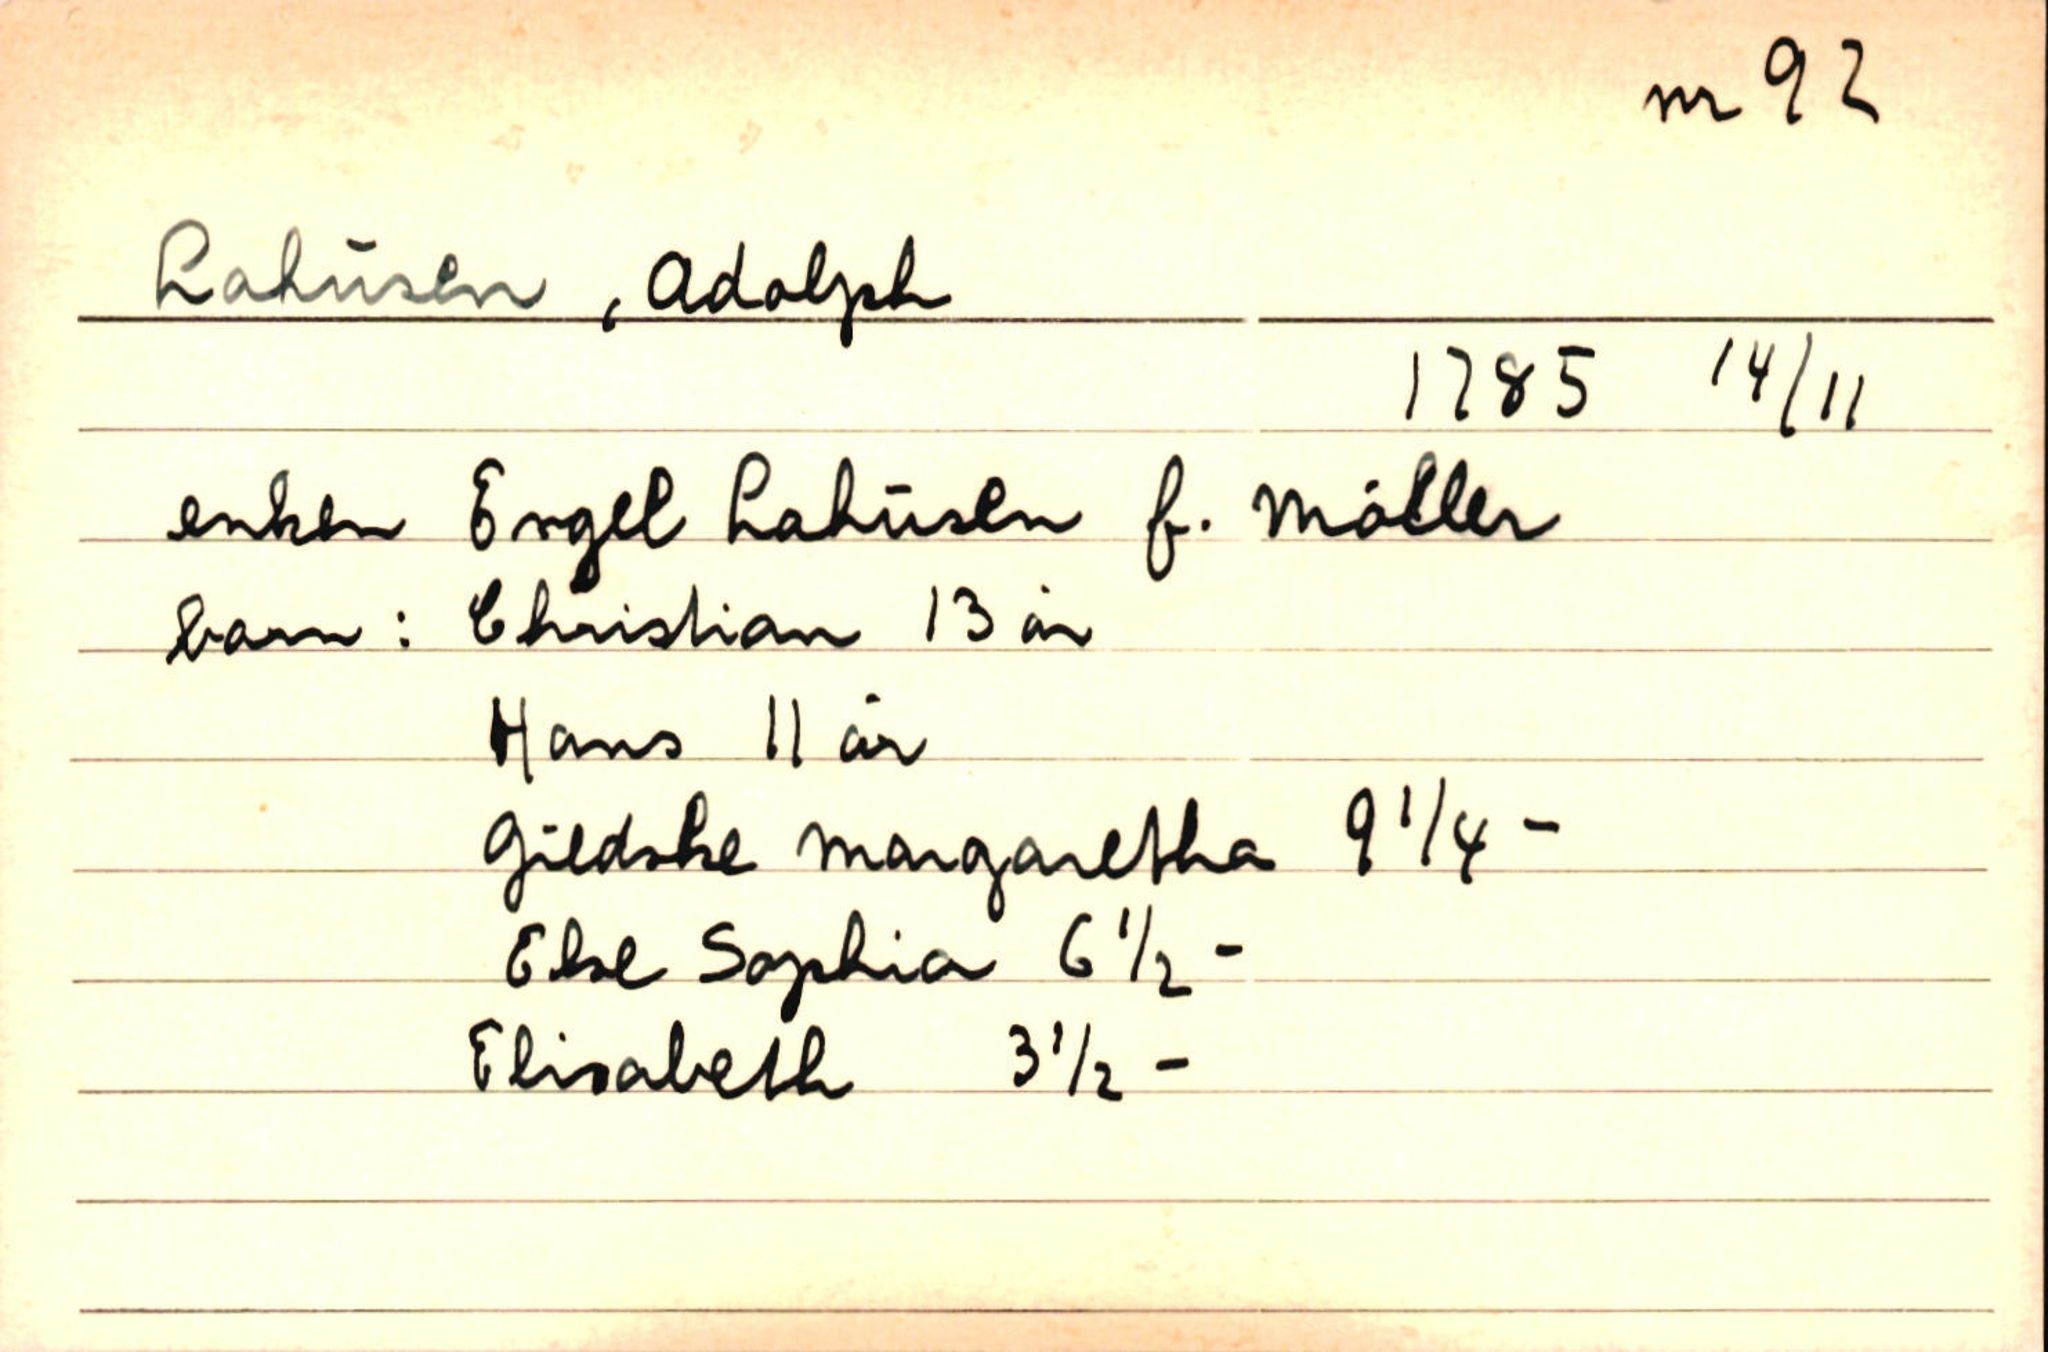 nr 92
Lahusen, Adolph
1785 14/11
enken Engel Lahusen f. Møller
barn: Christian 13 år
Hans 11 år
Giedske Margaretha 9 1/4 -
Else Sophia 6 1/2 -
Elisabeth 3 1/2 -